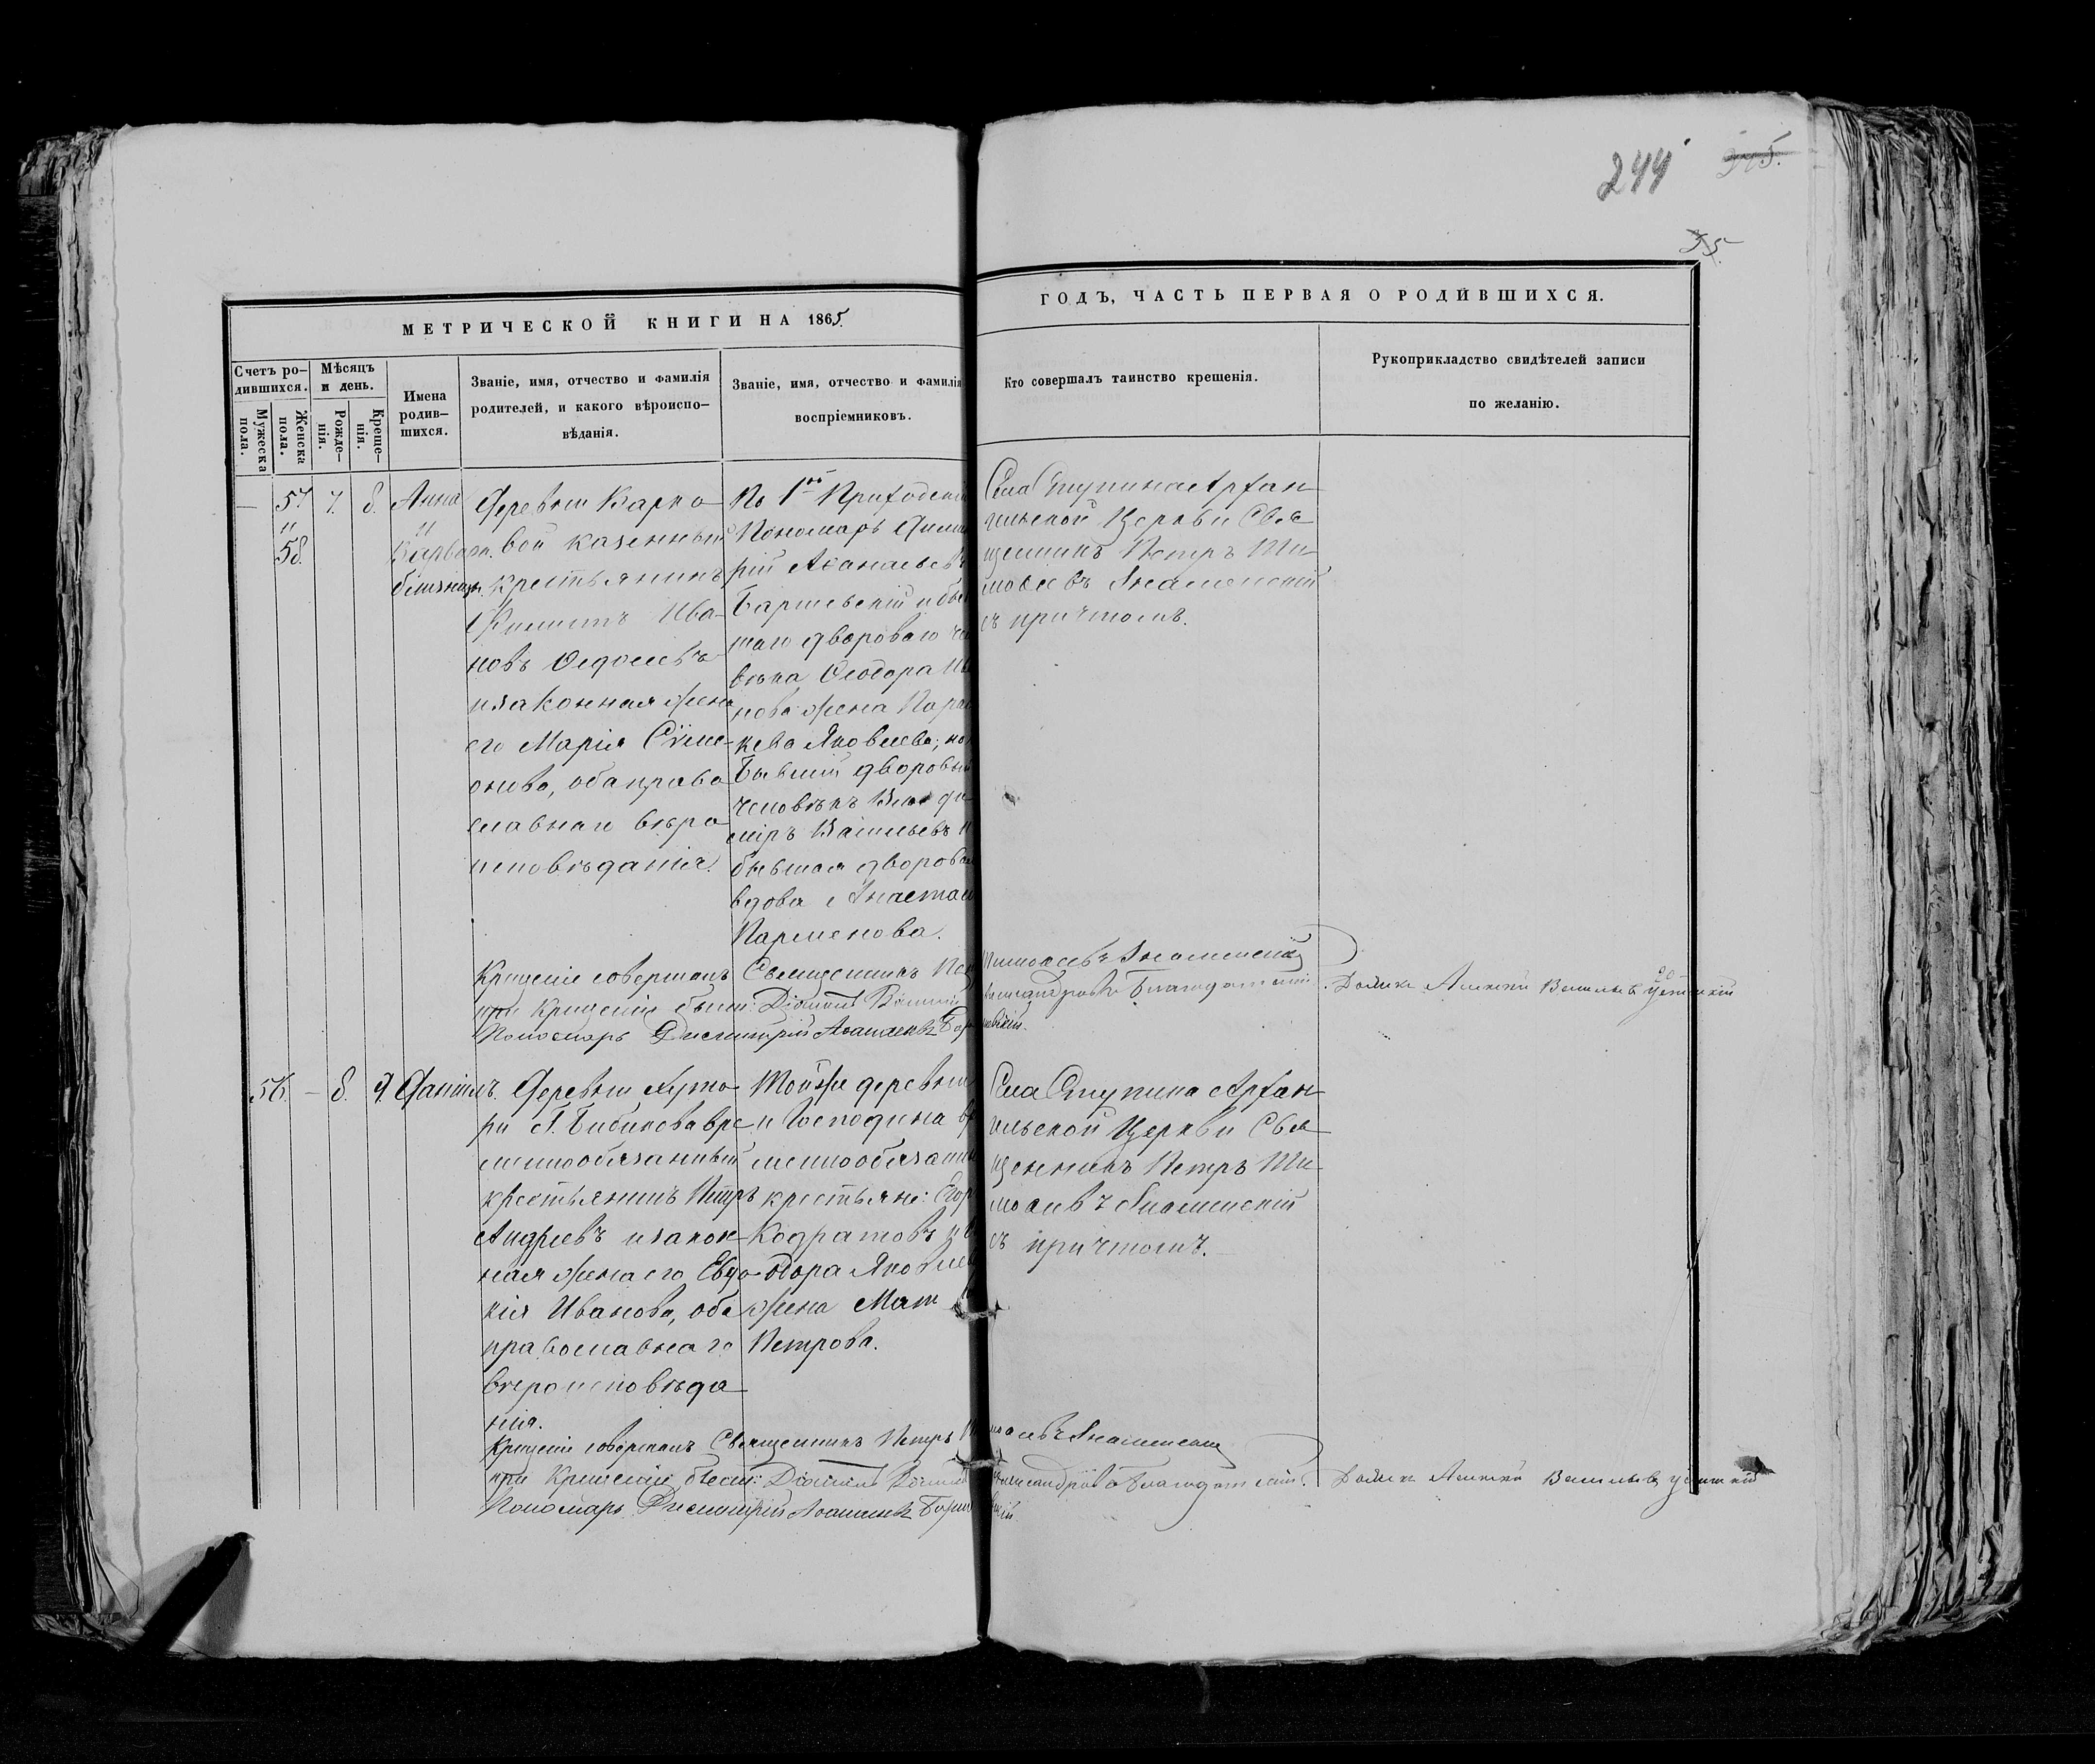 244
55
МЕТРИЧЕСКОЙ КНИГИ НА 1865.
ГОДЪ, ЧАСТЬ ПЕРВАЯ О РОДИВШИХСЯ.
Счетъ ро-
дившихся.
Мужеска
пола.
Женска
пола.
Мѣсяцъ
и день.
Рожде-
нія.
Креще-
нія.
Имена
родив-
шихся.
Званіе, имя, отчество и фамилія
родителей, и какого вѣроиспо-
вѣданія.
Званіе, имя, отчество и фамилія
воспріемниковъ.
Кто совершалъ таинство крещенія.
Рукоприкладство свидѣтелей записи
по желанію.
— 57 7. 8.
и
58.
Анна
и
близнецы.
Деревни Карпо
вой казенный
крестьянинъ
Филиппъ Ива-
новъ
и законная жена
его Марія Сѵме-
онова, оба право
славнаго вѣро
исповѣданія.
По 1ой Приходскій
Пономарь Дими
трій Аѳанасьевъ
и быв
шаго двороваго че
вѣка Ѳеодора Ив
нова жена Парас
кева Яковлева; по
бывшій дворовый
человѣкъ Влади
міръ Васильевъ и
бывшая дворовая
вдова Анастасі
Парменова.
Села Ступина Архан
гельской Церкви Свя
щенникъ Петръ Ти
моѳеевъ Знаменскій
съ причтомъ.
Крещеніе совершалъ Священникъ Петръ Тимоѳеевъ Знаменскій
при Крещеніи были: Діаконъ Василій Александровъ Благодатскій.
Пономарь Димитрій Аѳанасьевъ
Дьячекъ Алексѣй Васильевъ
56. — 8. 9. Даніилъ.
Деревни Хуто
ри Г. Бибикова вре
меннообязанный
крестьянинъ Петръ
Андреевъ и закон
ная жена его Евдо
кія Иванова, оба
православнаго
вѣроисповѣда
нія.
Той же деревни
и Господина вр
меннообязанны
крестьяне: Егор
Кодратовъ и Ѳ
одора Яковлев
жена Мат
Петрова.
Села Ступина Архан
гельской Церкви Свя
щенникъ Петръ Ти
моѳеевъ Знаменскій
съ причтомъ.
Крещеніе совершалъ Священникъ Петръ Тимоѳеевъ Знаменскій
при Крещеніи были: Діаконъ Василій Александровъ Благодатскій.
Пономарь Димитрій Аѳанасьевъ
Дьячекъ Алексѣй Васильевъ